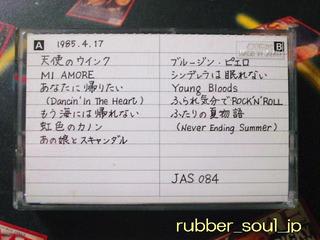 A 1985.4.17
天使のウインク
MI AMORE
あなたに帰りたい
(Dancin' In The Heart)
もう海には帰れない
虹色のカノン
あの娘とスキャンダル
B
ブルージン・ピエロ
シンデレラは眠れない
Young Bloods
ふられ気分でROCK'N'ROLL
ふたりの夏物語
(Never Ending Summer)
JAS 084
rubber_soul_jp